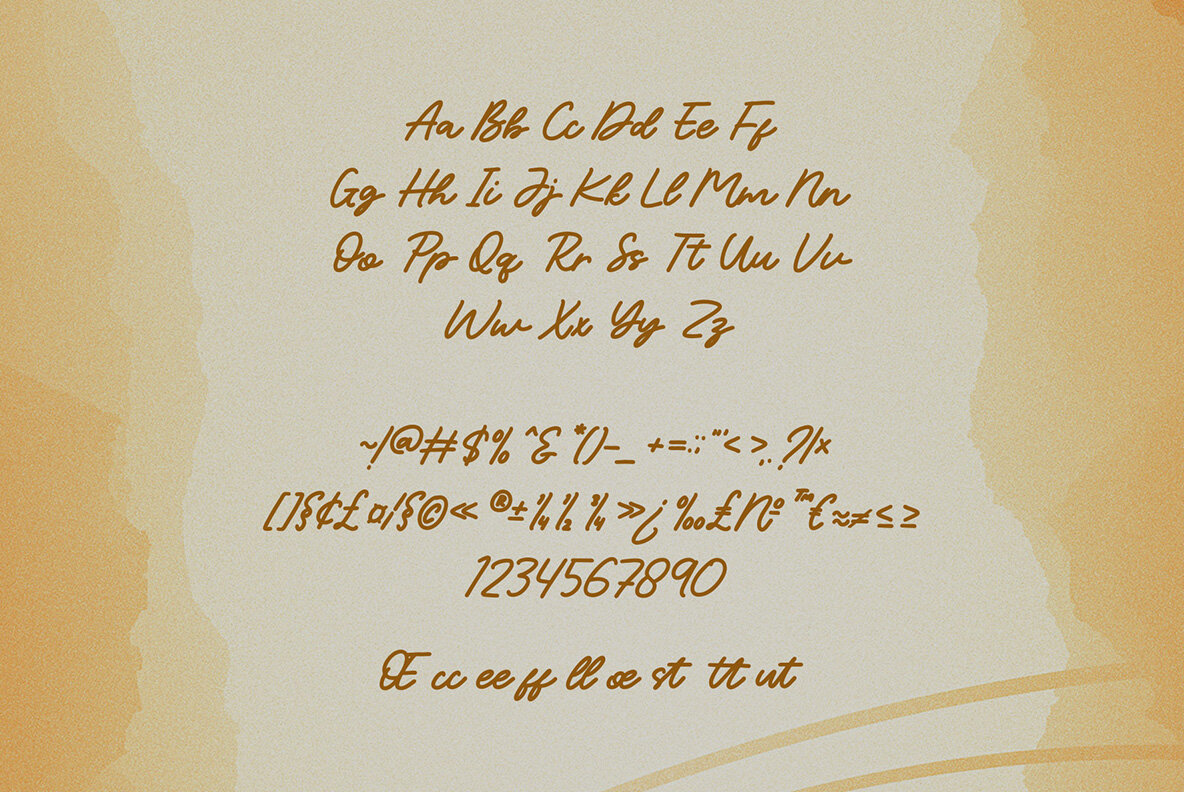 Aa Bb Cc Dd Ee Ff
Gg Hh Ii Jj Kk Ll Mm Nn
Oo Pp Qq Rr Ss Tt Uu Vv
Ww Xx Yy Zz
~!@#$% ^& *()-_ +=.:; "'< >,. ?/×
[]§¢£ ¤¡§©« ®±¼ ½ ¾ »¿ ‰₤№ ™€≈≠≤≥
1234567890
Œ cc ee ff ll œ st tt ut